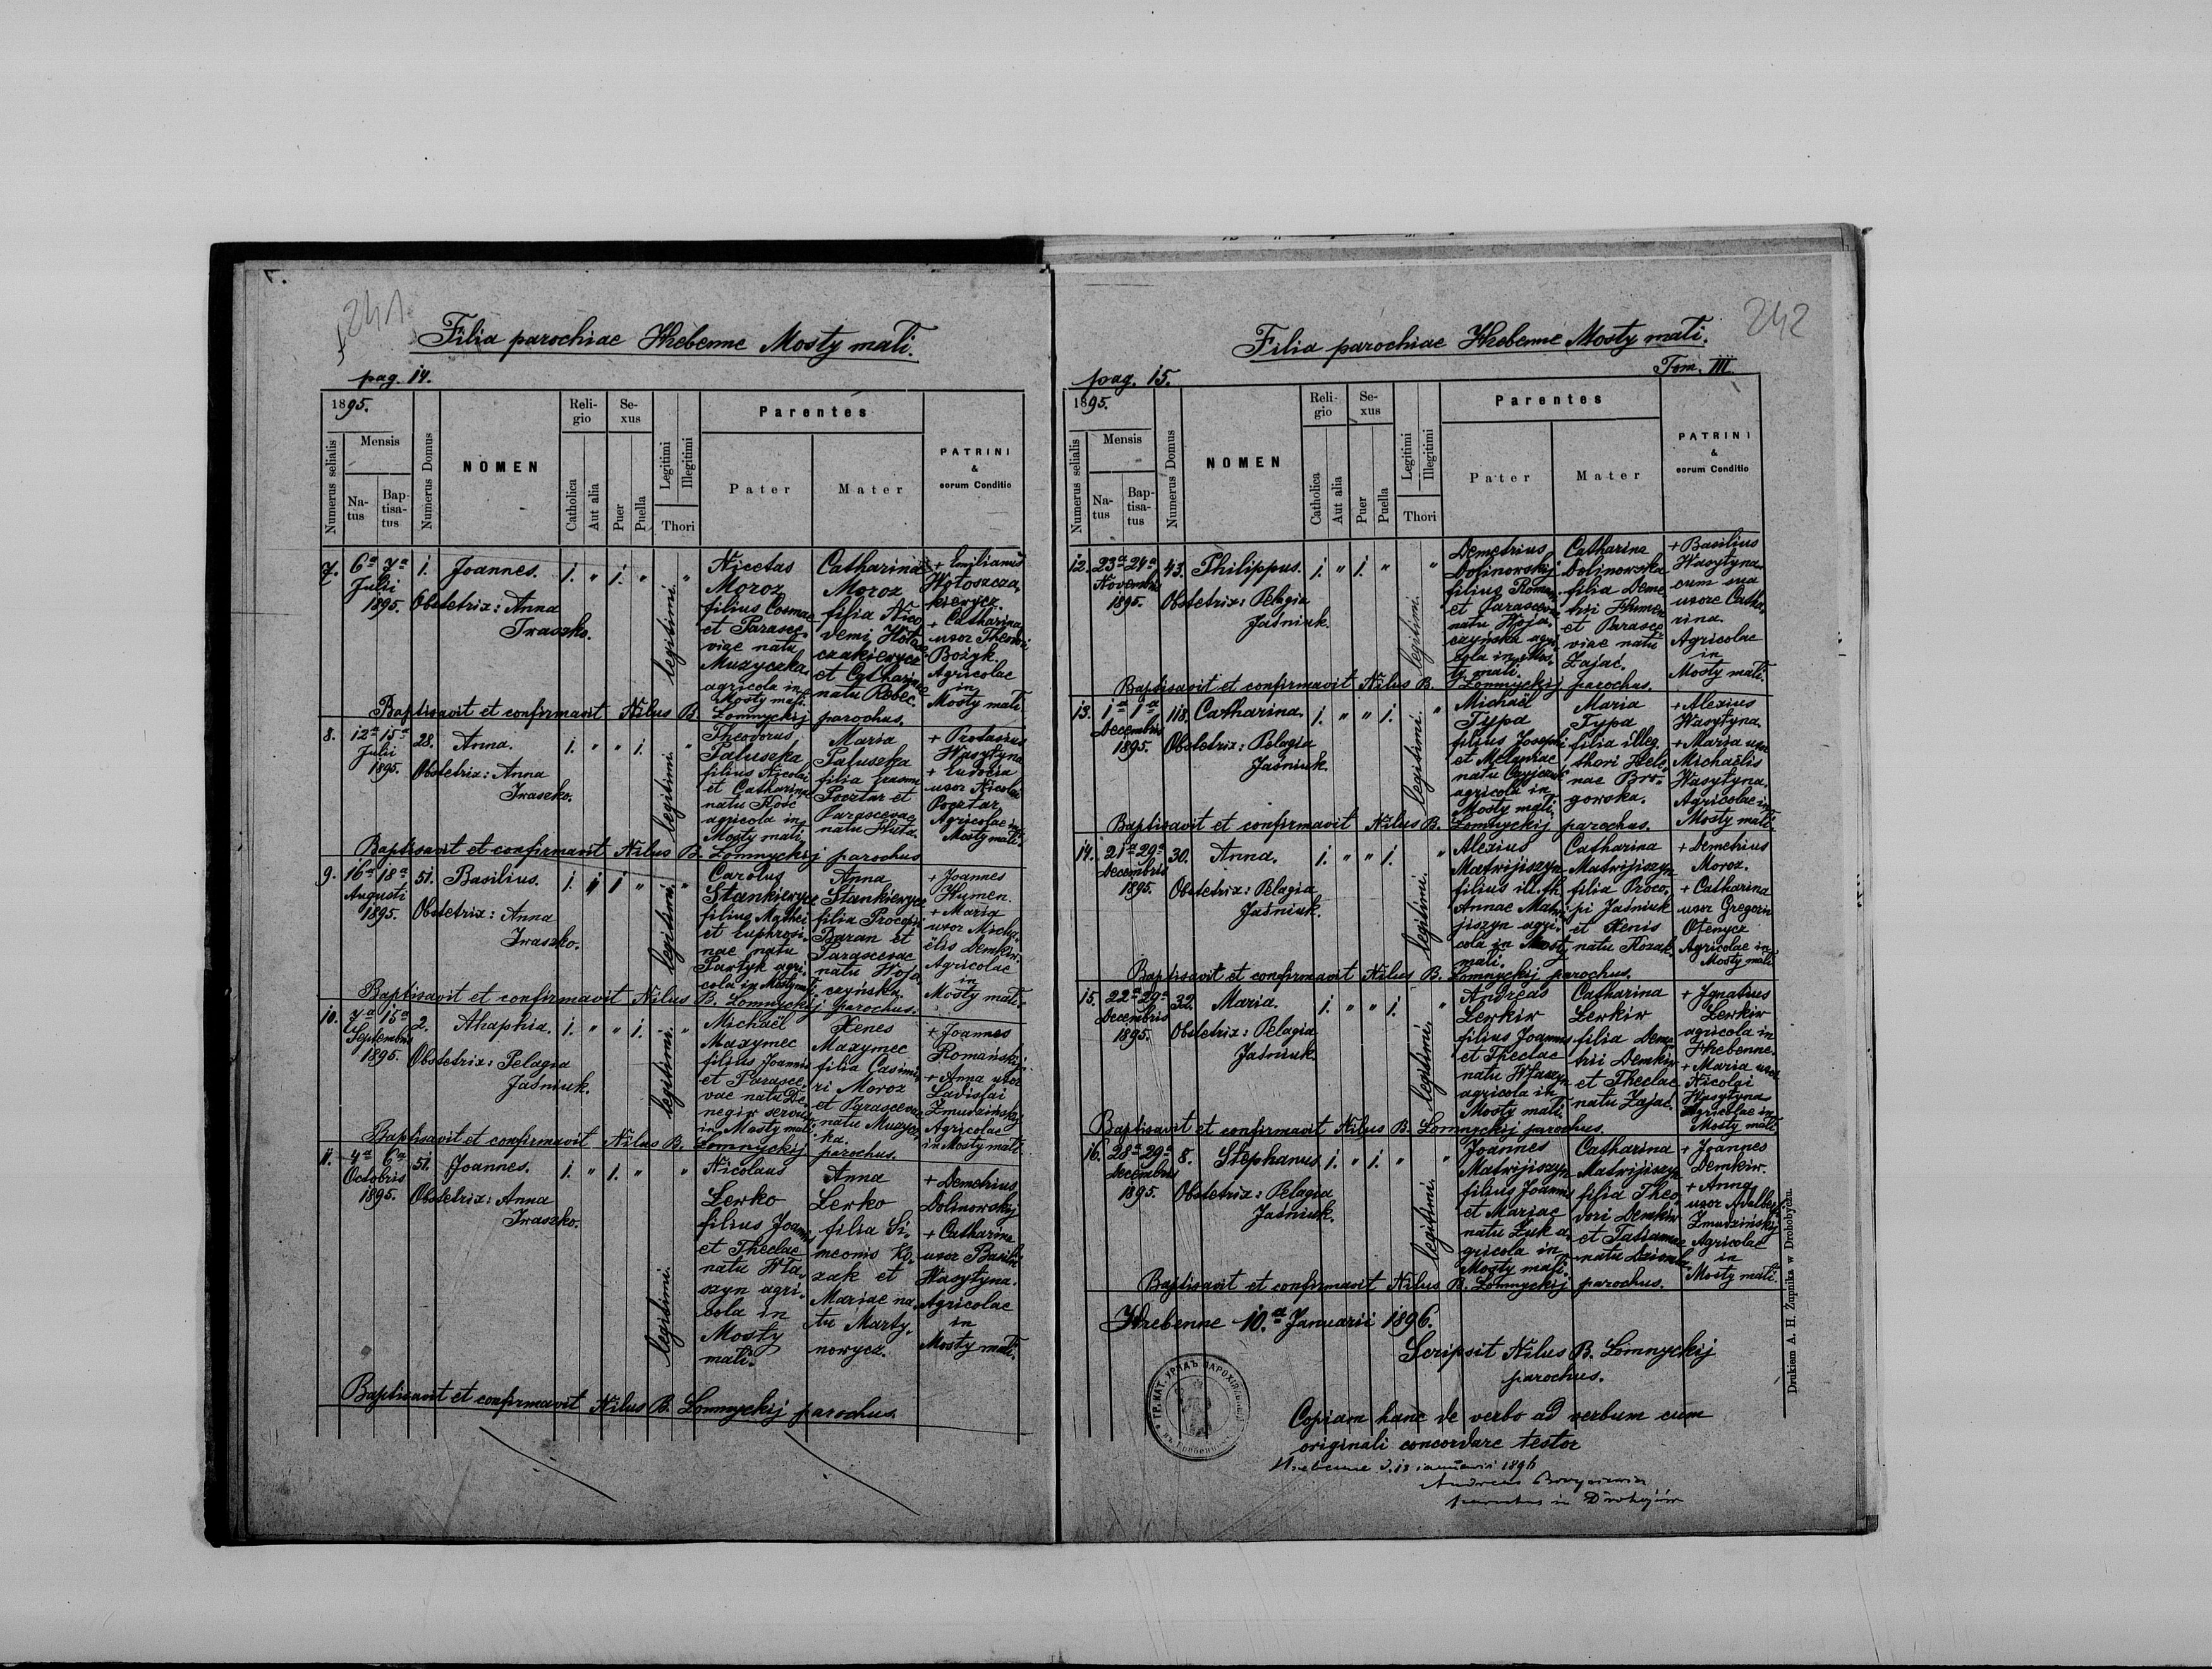 241
Filia parochiae Hrebenne Mosty mali.
pag. 14.
1895.
Numerus serialis
Mensis
Natus
Baptisatus
Numerus Domus
NOMEN
Religio
Catholica
Aut alia
Sexus
Puer
Puella
Legitimi
Illegitimi
Thori
Parentes
Pater
Mater
PATRINI
&
eorum Conditio
7. 6ª 7ª 1. Joannes. 1. " 1. " "
Julii
1895. Obstetrix: Anna
Iraszko.
legitimi.
Nicetas
Moroz
filius Cosmae
et Parasce-
viae natu
Muzyczka
agricola in
Mosty mali.
Catharina
Moroz
filia Nico-
demi Hoło-
czakiewycz
et Catharinae
natu Rebec.
+ Emilianus
Wołoszcza-
kiewycz.
+ Catharina
uxor Theodori
Bożyk.
Agricolae
in
Mosty mali
Baptisavit et confirmavit Nilus B. Łomnyckij parochus.
8. 12ª 15ª 28. Anna. 1. " " 1. "
Julii
1895. Obstetrix: Anna
Iraszko.
legitimi.
Theodorus
Paluszka
filius Nicolai
et Catharinae
natu Kość
agricola in
Mosty mali
Maria
Paluszka
filia Erasmi
Pocztar et
Parascevae
natu Huta.
+ Protasius
Wasyłyna
+ Eudocia
uxor Nicolai
Pocztar,
Agricolae in
Mosty mali.
Baptisavit et confirmavit Nilus B. Łomnyckij parochus
9. 16ª 18ª 51. Basilius. 1. 1 " "
Augusti
1895. Obstetrix: Anna
Iraszko.
legitimi.
Carolus
Stankiewycz
filius Mathei
et Euphrosi-
nae natu
Partyk agri-
cola in Mosty mali
Anna
Stankiewycz
filia Procopii
Baran et
Parascevae
natu Woja-
czyńska.
+ Joannes
Humen.
+ Maria
uxor Micha-
ëlis Demkiw.
Agricolae
in
Mosty mali.
Baptisavit et confirmavit Nilus B. Łomnyckij parochus.
10. 7ª 15ª 2. Ahaphia. 1. " " 1. "
Septembris
1895. Obstetrix: Pelagia
Jaśniuk.
legitimi.
Michaël
Maxymec
filius Joannis
et Parasce-
vae natu De-
negiw servus
in Mosty mali
Xenes
Maxymec
filia Casimi-
ri Moroz
et Parascevae
natu Muzycz-
ka.
+ Joannes
Romańskij.
+ Anna uxor
Ladislai
Zmudzińskij
Agricolae
in Mosty mali
Baptisavit et confirmavit Nilus B. Łomnyckij parochus.
11. 4ª 6ª 51. Joannes. 1. " 1. " "
Octobris
1895. Obstetrix: Anna
Iraszko.
legitimi.
Nicolaus
Lewko
filius Joannis
et Theclae
natu Wła-
szyn agri-
cola in
Mosty
mali.
Anna
Lewko
filia Si-
meonis Ko-
zak et
Mariae na-
tu Marty-
nowycz.
+ Demetrius
Dolinowskij
+ Catharina
uxor Basilii
Wasyłyna.
Agricolae
in
Mosty mali.
Baptisavit et confirmavit Nilus B. Łomnyckij parochus.
242
Filia parochiae Hrebenne Mosty mali.
Tom. III.
pag. 15.
1895.
Numerus serialis
Mensis
Natus
Baptisatus
Numerus Domus
NOMEN
Religio
Catholica
Aut alia
Sexus
Puer
Puella
Legitimi
Illegitimi
Thori
Parentes
Pater
Mater
PATRINI
&
eorum Conditio
12. 23ª 24ª 43. Philippus. 1. " 1. " "
Novembris
1895. Obstetrix: Pelagia
Jaśniuk.
legitimi.
Demetrius
Dolinowskij
filius Romani
et Parascevae
natu Woja-
czyńska agri-
cola in Mos-
ty mali.
Catharina
Dolinowska
filia Deme-
trii Humen
et Parasce-
viae natu
Zając.
+ Basilius
Wasyłyna
cum sua
uxore Catha-
rina.
Agricolae
in
Mosty mali.
Baptisavit et confirmavit Nilus B. Łomnyckij parochus.
13. 1ª 1ª 118. Catharina. 1. " " 1. "
Decembris
1895. Obstetrix: Pelagia
Jaśniuk.
legitimi.
Michaël
Typa
filius Josephi
et Melaniae
natu
agricola in
Mosty mali
Maria
Typa
filia illeg.
thori Hele-
nae Bro-
gowska.
+ Alexius
Wasyłyna.
+ Maria uxor
Michaëlis
Wasyłyna.
Agricolae in
Mosty mali.
Baptisavit et confirmavit Nilus B. Łomnyckij parochus.
14. 21ª 29ª 30. Anna. 1. " " 1. "
Decembris
1895. Obstetrix: Pelagia
Jaśniuk.
legitimi.
Alexius
Matwijiszyn
filius ill. th.
Annae Matwi-
jiszyn agri-
cola in Mosty
mali.
Catharina
Matwijiszyn
filia Proco-
pi Jaśniuk
et Xenis
natu Kozak.
+ Demetrius
Moroz.
+ Catharina
uxor Gregorii
Ołenycz
Agricolae in
Mosty mali
Baptisavit et confirmavit Nilus B. Łomnyckij parochus.
15. 22ª 29ª 32. Maria. 1. " " 1. "
Decembris
1895. Obstetrix: Pelagia
Jaśniuk.
legitimi.
Andreas
Lewkiw
filius Joannis
et Theclae
natu Właszyn
agricola in
Mosty mali.
Catharina
Lewkiw
filia Deme-
trii Demkiw
et Theclae
natu Zając.
+ Ignatius
Lewkiw
agricola in
Hrebenne.
+ Maria uxor
Nicolai
Wasyłyna
Agricolae in
Mosty mali
Baptisavit et confirmavit Nilus B. Łomnyckij parochus.
16. 28ª 29ª 8. Stephanus 1. " 1. " "
Decembris
1895. Obstetrix: Pelagia
Jaśniuk.
legitimi.
Joannes
Matwijiszyn
filius Joannis
et Mariae
natu Żuk a-
gricola in
Mosty mali.
Catharina
Matwijiszyn
filia Theo-
dori Demkiw
et Tatianae
natu
+ Joannes
Demkiw.
+ Anna
uxor Adalberti
Zmudzińskij
Agricolae
in
Mosty mali.
Baptisavit et confirmavit Nilus B. Łomnyckij parochus.
Hrebenne 10.ª Januarii 1896.
Scripsit Nilus B. Łomnyckij
parochus.
ГР. КАТ. УРЯДЪ ПАРОХІЯ
Copiam hanc de verbo ad verbum cum
originali concordare testor
Hrebenne d. 13 januarii 1896
Andreas
parochus in
Drukiem A. H. Żupnika w Drohobyczu.